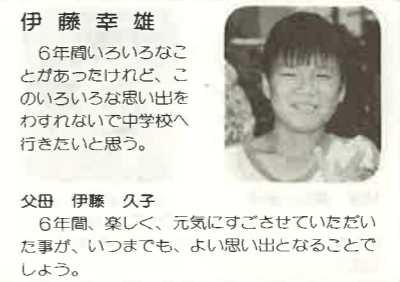 伊藤幸雄
６年間いろいろなこ
とがあったけれど、こ
のいろいろな思い出を
わすれないで中学校へ
行きたいと思う。
父母　伊藤　久子
６年間、楽しく、元気にすごさせていただい
た事が、いつまでも、よい思い出となることで
しょう。